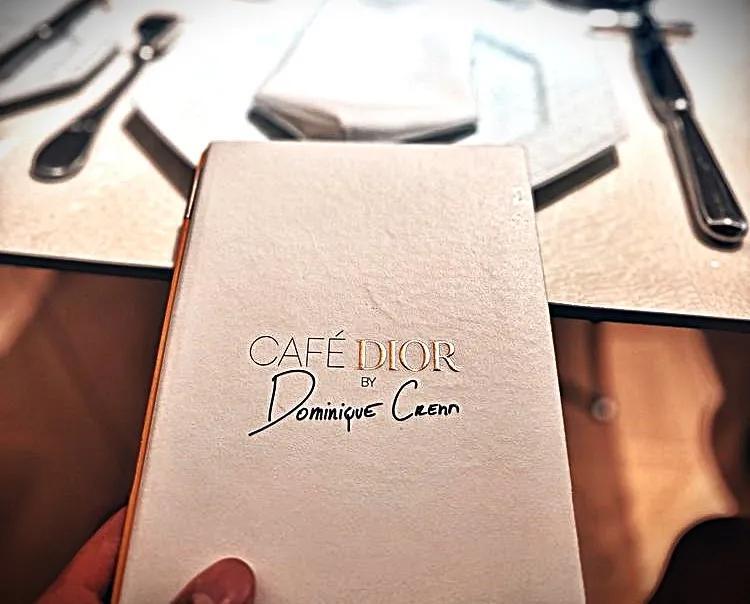 CAFÉ DIOR
BY
Dominique Crenn